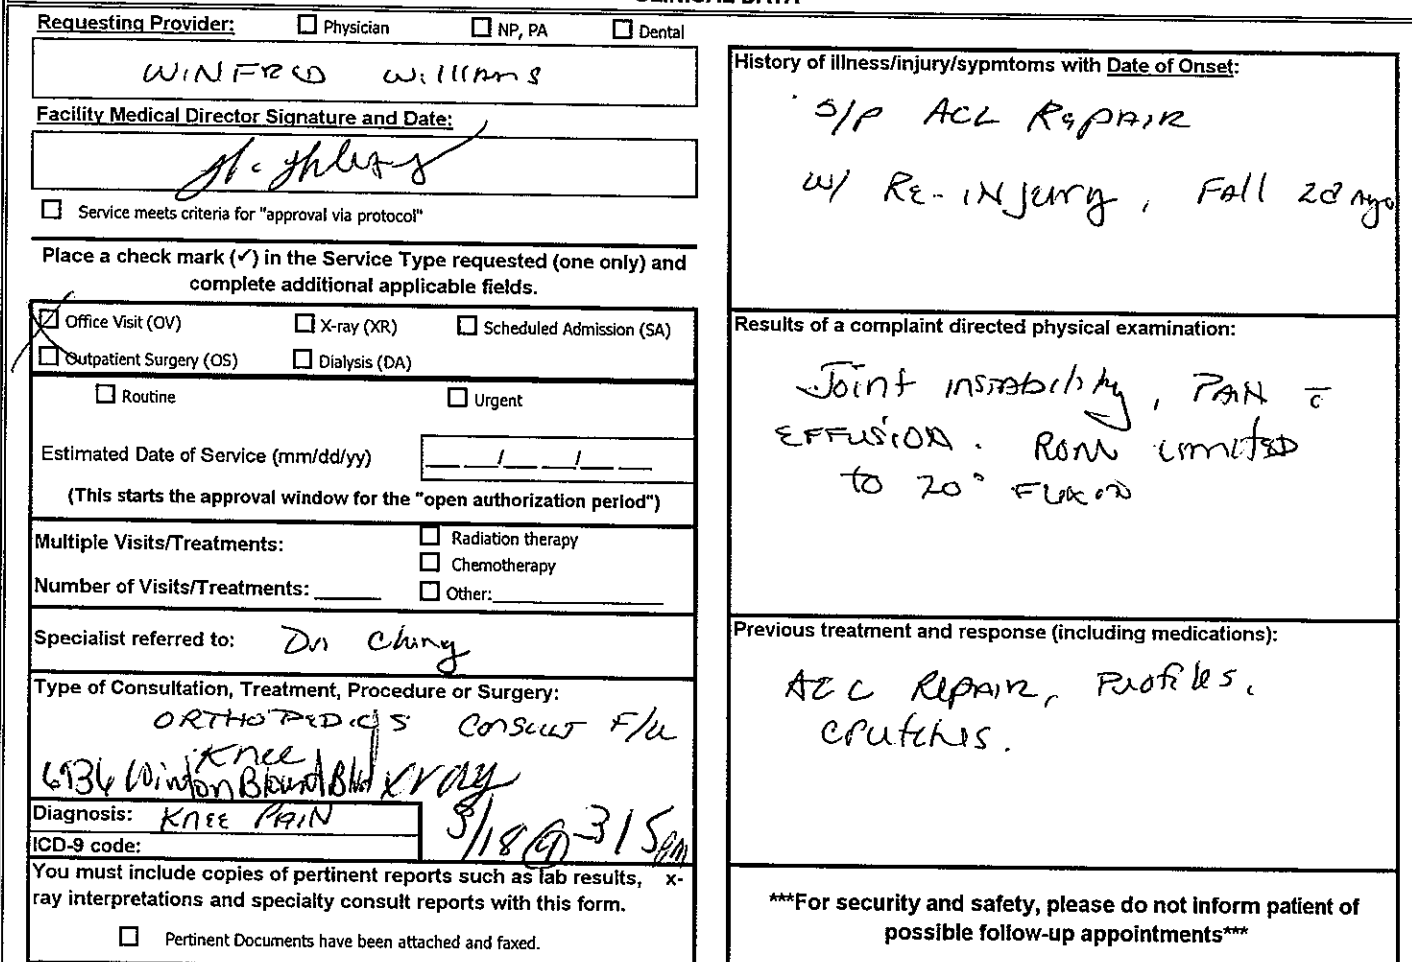 Requesting Provider: ☐ Physician ☐ NP, PA ☐ Dental
WINFRED Williams
Facility Medical Director Signature and Date:
☐ Service meets criteria for "approval via protocol"
Place a check mark (✓) in the Service Type requested (one only) and
complete additional applicable fields.
☑ Office Visit (OV) ☐ X-ray (XR) ☐ Scheduled Admission (SA)
☐ Outpatient Surgery (OS) ☐ Dialysis (DA)
☐ Routine ☐ Urgent
Estimated Date of Service (mm/dd/yy) __ __/__ __/__ __
(This starts the approval window for the "open authorization period")
Multiple Visits/Treatments: ☐ Radiation therapy
☐ Chemotherapy
Number of Visits/Treatments: ______ ☐ Other:______________
Specialist referred to: Dr Chung
Type of Consultation, Treatment, Procedure or Surgery:
ORTHOPEDICS Consult F/u
Knee
6936 Winton Blount Blvd xray
Diagnosis: KNEE PAIN
3/18 @ 315pm
ICD-9 code:
You must include copies of pertinent reports such as lab results, x-
ray interpretations and specialty consult reports with this form.
☐ Pertinent Documents have been attached and faxed.
History of illness/injury/sypmtoms with Date of Onset:
S/P ACL REPAIR
w/ RE-INJury, Fall 2d ago
Results of a complaint directed physical examination:
Joint instability, PAIN c̄
EFFUSION. ROM LIMITED
to 20° FLEXION
Previous treatment and response (including medications):
ACL REPAIR, Profiles,
crutches.
***For security and safety, please do not inform patient of
possible follow-up appointments***